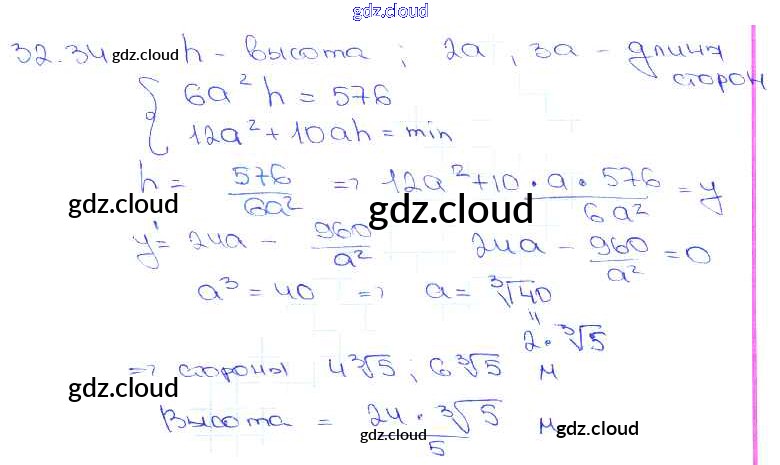 gdz.cloud
32.34 gdz.cloud h - высота ; 2a , 3a - длина сторон
6a² h = 576
12a² + 10ah = min
h = 576/6a² => 12a² + 10 · a · 576/6a² = y
gdz.cloud gdz.cloud
y' = 24a - 960/a² 24a - 960/a² = 0
a³ = 40 => a = ∛40
"
2 · ∛5
=> стороны 4∛5 ; 6∛5 м
gdz.cloud
Высота = 24 · ∛5/5 м gdz.cloud
gdz.cloud